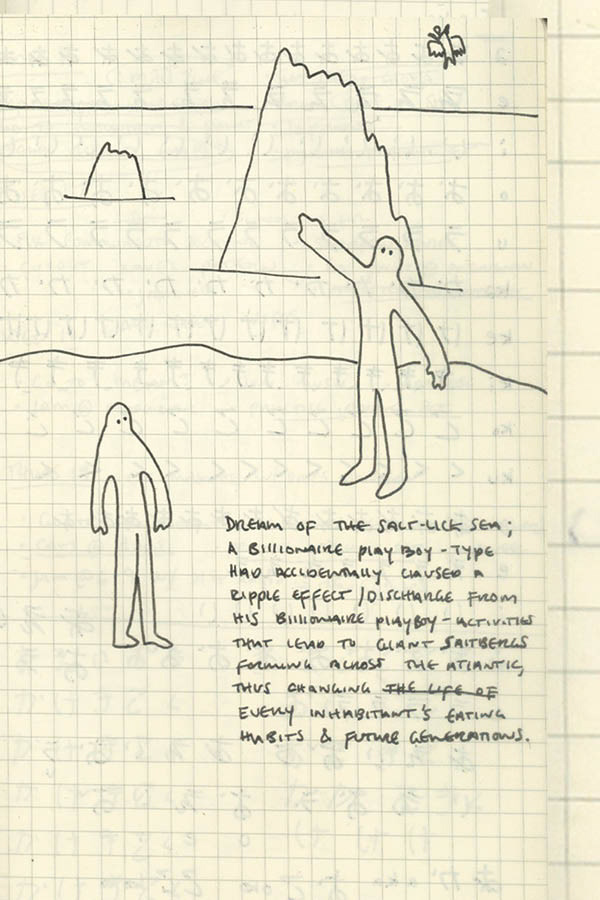 DREAM OF THE SALT-LICK SEA;
A BILLIONAIRE PLAYBOY-TYPE
HAD ACCIDENTALLY CAUSED A
RIPPLE EFFECT/DISCHARGE FROM
HIS BILLIONAIRE PLAYBOY-ACTIVITIES
THAT LEAD TO GIANT SALTBERGS
FORMING ACROSS THE ATLANTIC,
THUS CHANGING THE LIFE OF
EVERY INHABITANT'S EATING
HABITS & FUTURE GENERATIONS.